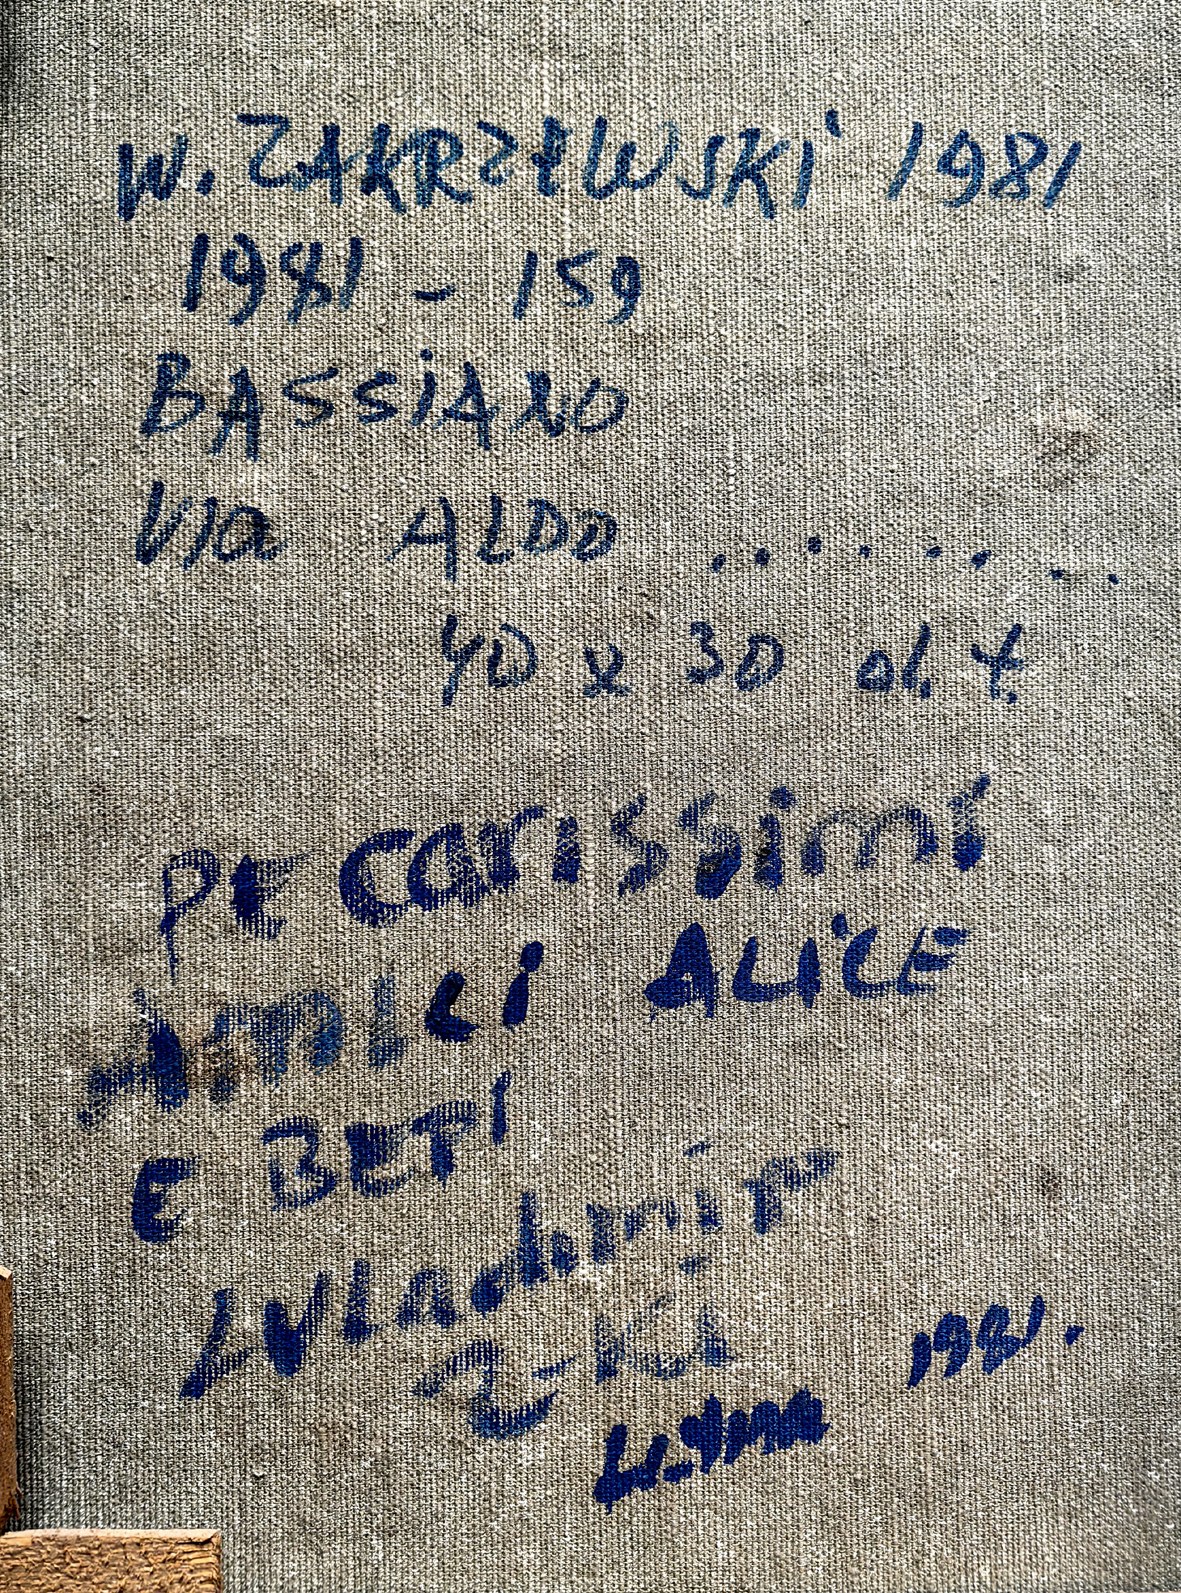 W. ZAKRZEWSKI 1981
1981 - 159
BASSIANO
Via ALDO .........
40 x 30 ol. t.
PE carissimi
Amici ALICE
E BEPI
Wladimir
Z-Ki
1981.